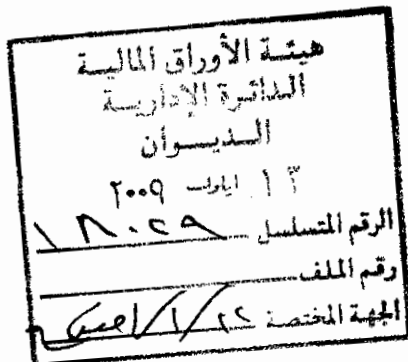 هيئة الأوراق المالية
الدائرة الإدارية
الديوان
١٣ ايلول ٢٠٠٩
الرقم المتسلسل ١٨٠٢٩
رقم الملف
الجهة المختصة